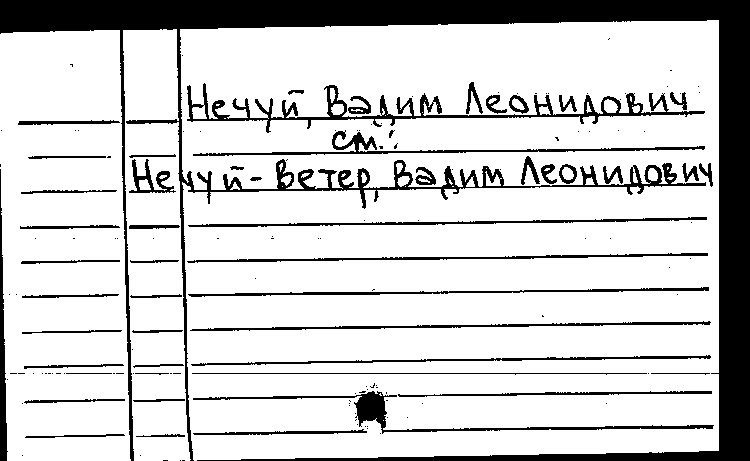 Нечуй, Вадим Леонидович
см.:
Нечуй-Ветер, Вадим Леонидович